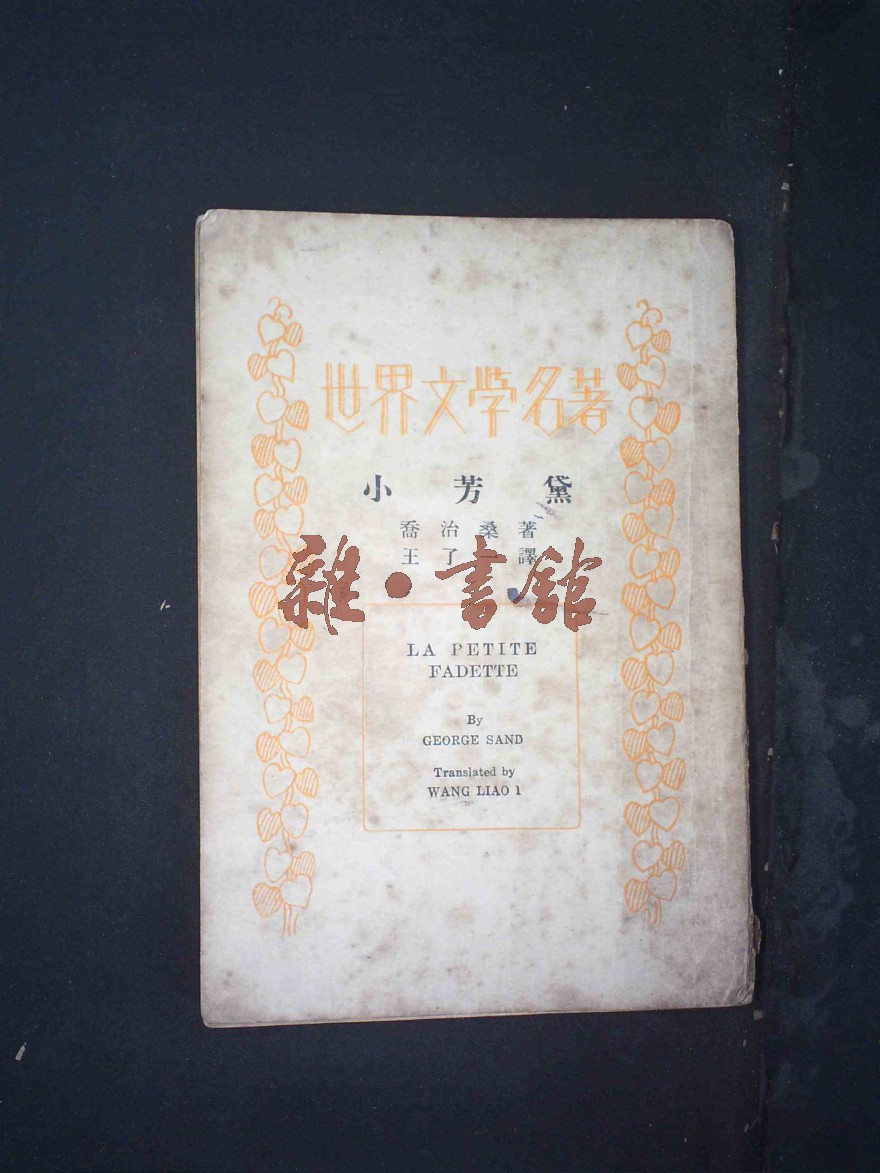 世界文學名著
小芳黛
喬治桑著
王了一譯
雜·書館
LA PETITE
FADETTE
By
GEORGE SAND
Translated by
WANG LIAO 1